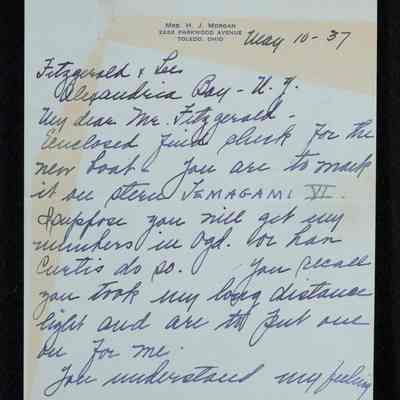 MRS. H. J. MORGAN
2252 PARKWOOD AVENUE
TOLEDO, OHIO
May 10-37
Fitzgerald & Lee
Alexandria Bay - N.Y.
My dear Mr. Fitzgerald -
Enclosed find check for the
new boat - You are to mark
it on stern TEMAGAMI VI.
I suppose you will get my
numbers in Ogd. or han
Curtis do so. You recall
you took my long distance
light and are to put one
on for me.
You understand my feeling